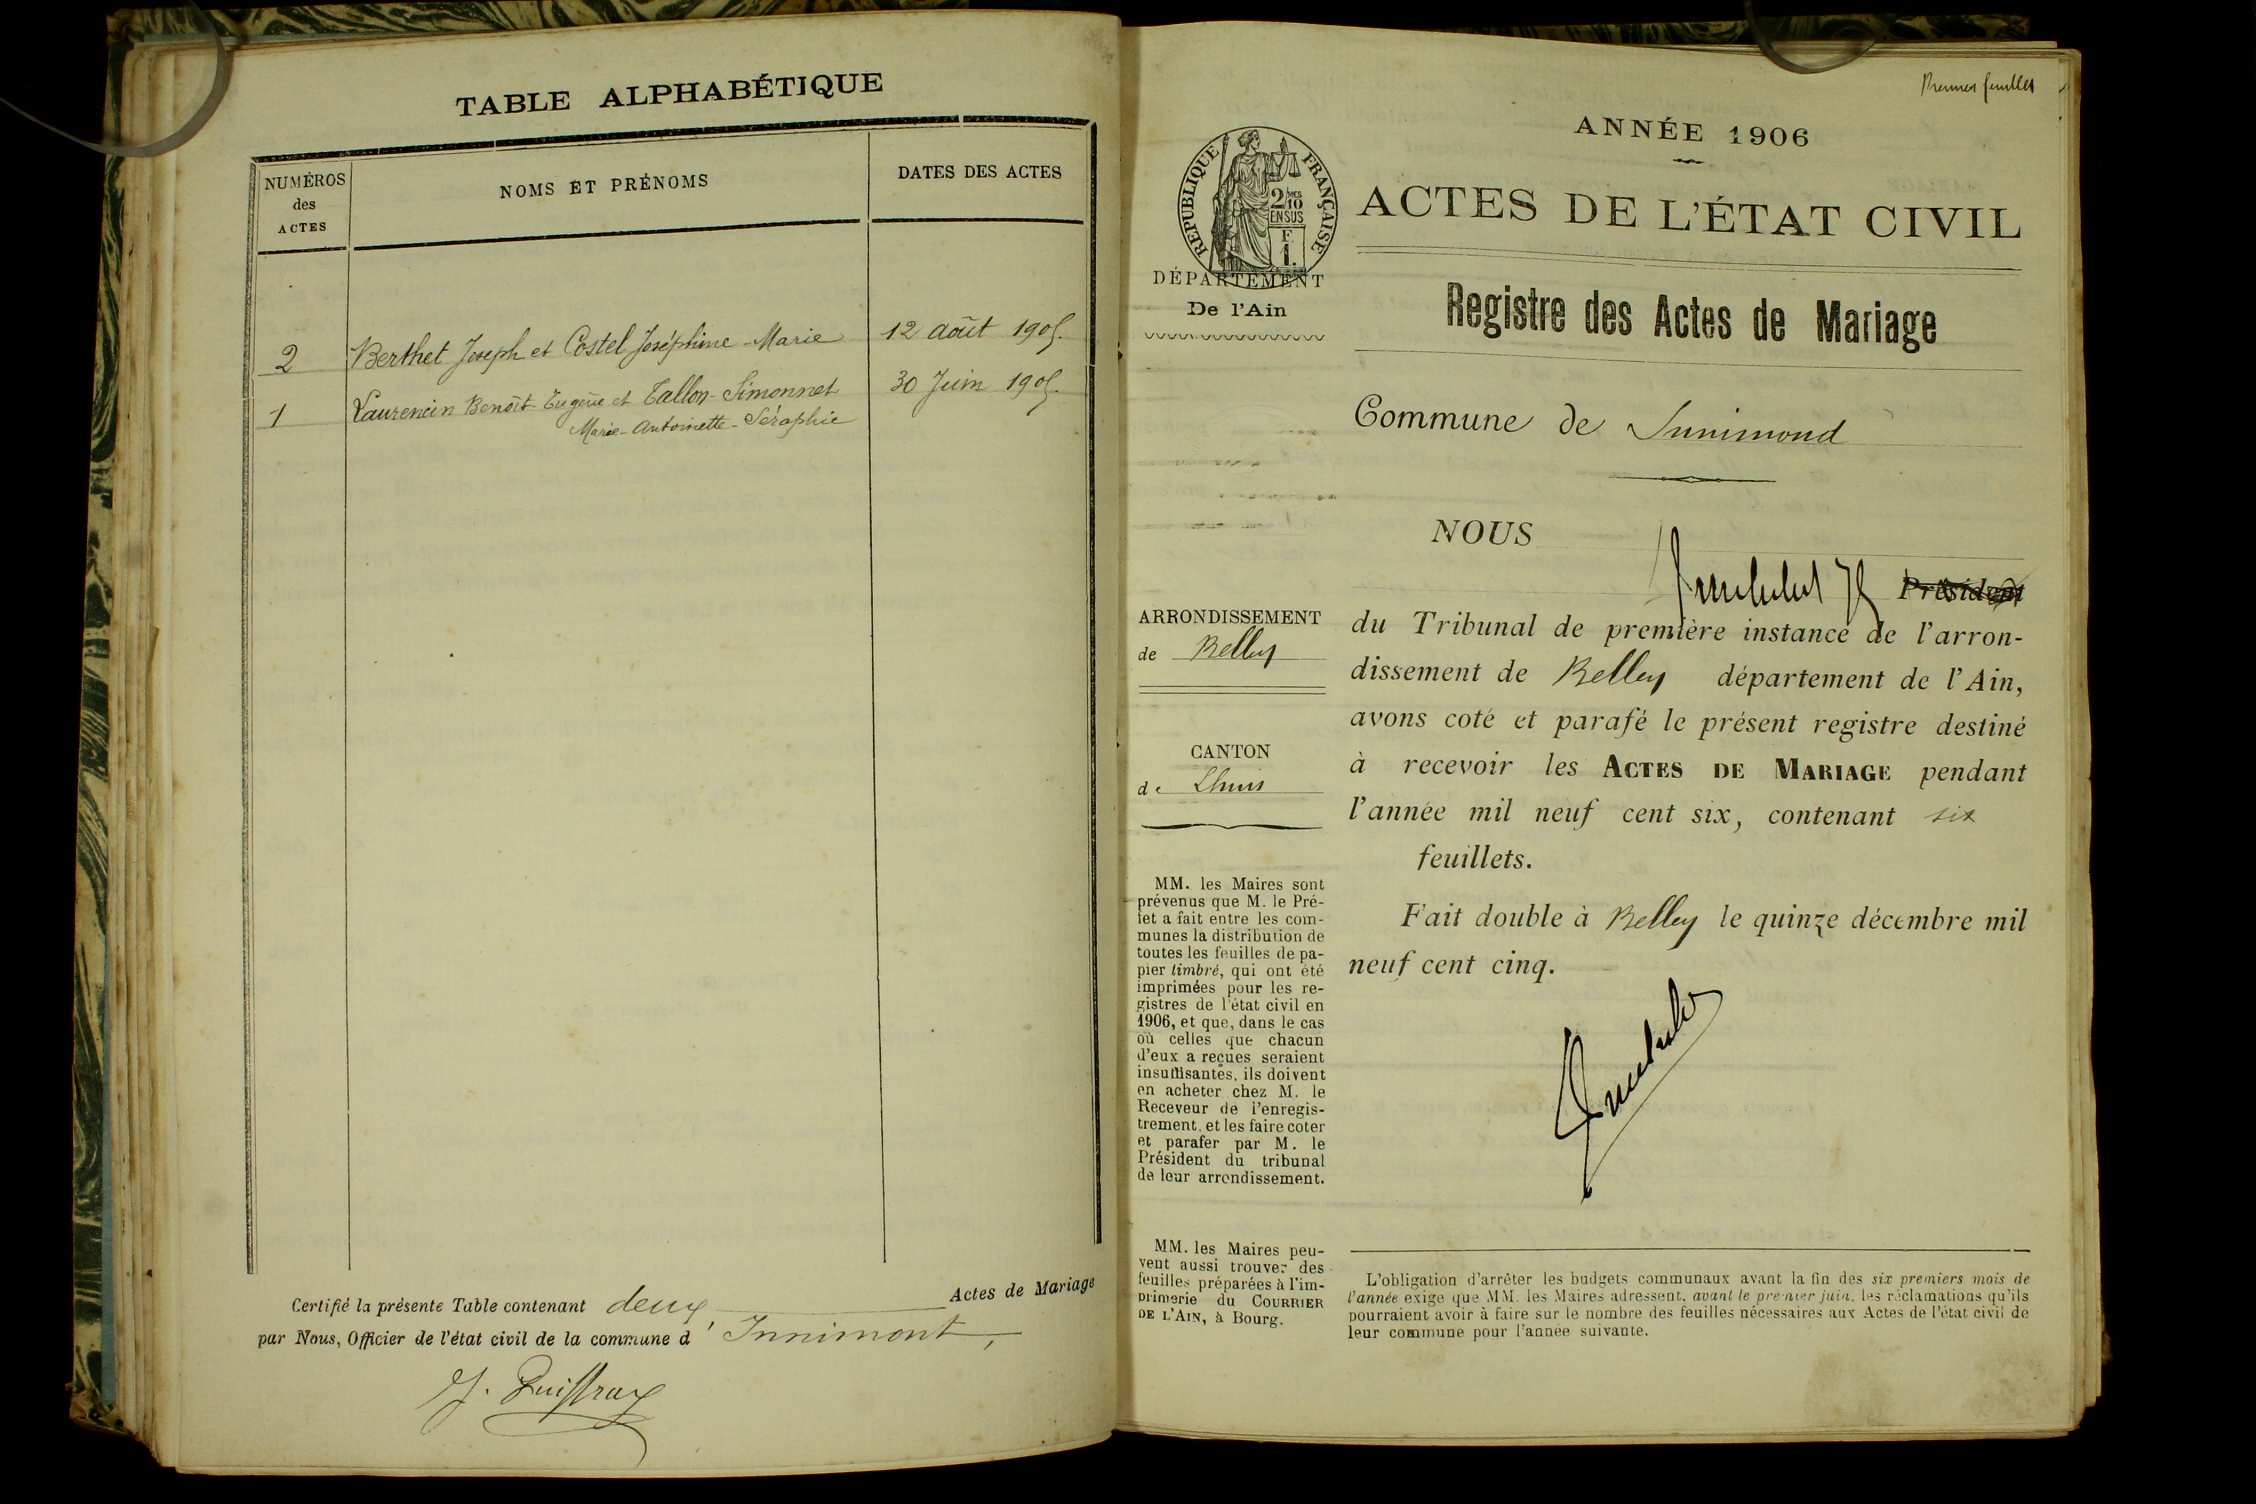 TABLE ALPHABÉTIQUE
NUMÉROS
des
ACTES
NOMS ET PRÉNOMS
DATES DES ACTES
2 Berthet Joseph et Costel Joséphine-Marie 12 août 1905.
1 Laurencin Benoît-Eugène et Tallon-Simonnet 30 Juin 1905.
Marie-Antoinette-Séraphie
Certifié la présente Table contenant deux Actes de Mariage
par Nous, Officier de l'état civil de la commune d' Innimont,
Premier feuillet
ANNÉE 1906
RÉPUBLIQUE FRANÇAISE
2/10
EN SUS
F.
1.
ACTES DE L'ÉTAT CIVIL
DÉPARTEMENT
De l'Ain
Registre des Actes de Mariage
Commune de Innimond
NOUS
Président
ARRONDISSEMENT
de Belley
CANTON
de Lhuis
du Tribunal de première instance de l'arron-
dissement de Belley département de l'Ain,
avons coté et parafé le présent registre destiné
à recevoir les ACTES DE MARIAGE pendant
l'année mil neuf cent six, contenant six
feuillets.
Fait double à Belley le quinze décembre mil
neuf cent cinq.
MM. les Maires sont
prévenus que M. le Pré-
fet a fait entre les com-
munes la distribution de
toutes les feuilles de pa-
pier timbré, qui ont été
imprimées pour les re-
gistres de l'état civil en
1906, et que, dans le cas
où celles que chacun
d'eux a reçues seraient
insuffisantes, ils doivent
en acheter chez M. le
Receveur de l'enregis-
trement, et les faire coter
et parafer par M. le
Président du tribunal
de leur arrondissement.
MM. les Maires peu-
vent aussi trouver des
feuilles préparées à l'im-
primerie du COURRIER
DE L'AIN, à Bourg.
L'obligation d'arrêter les budgets communaux avant la fin des six premiers mois de
l'année exige que MM. les Maires adressent, avant le premier juin, les réclamations qu'ils
pourraient avoir à faire sur le nombre des feuilles nécessaires aux Actes de l'état civil de
leur commune pour l'année suivante.